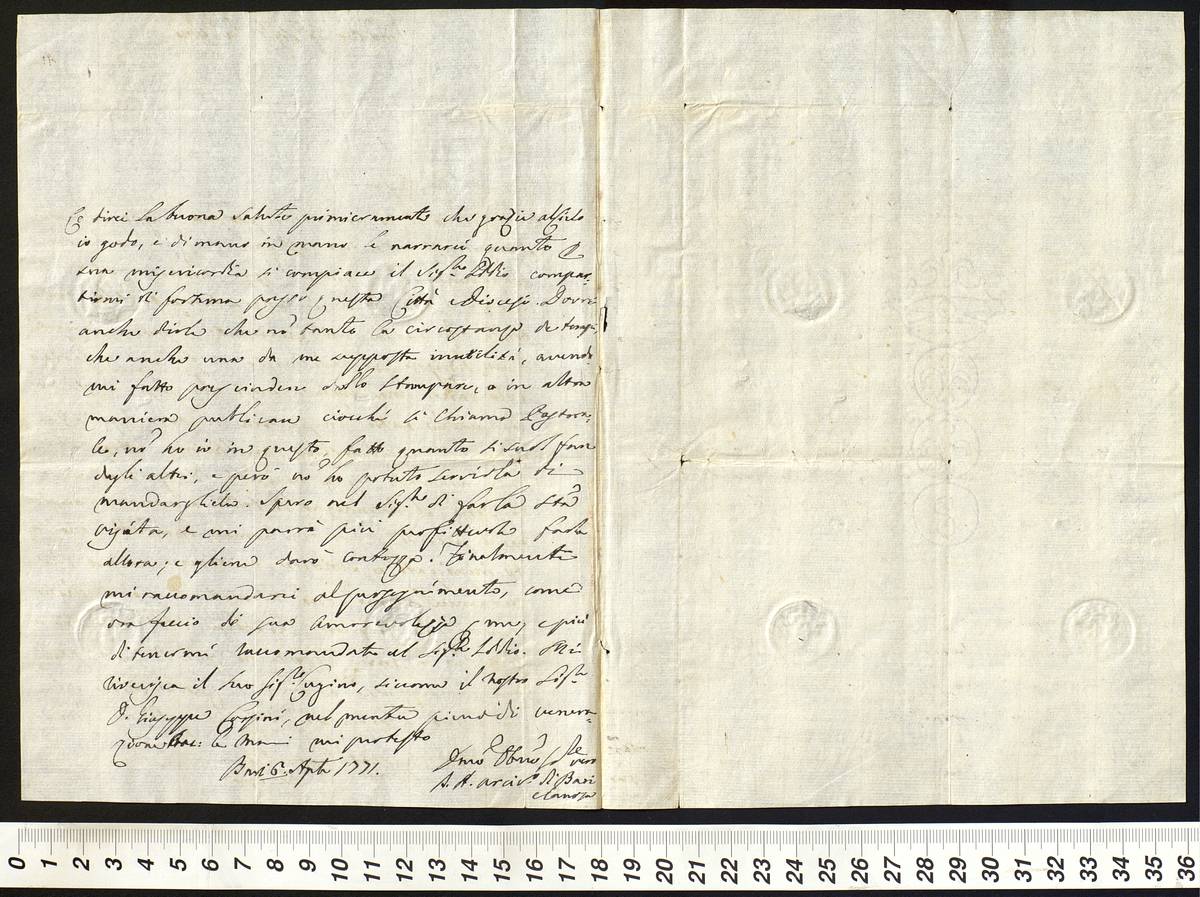 e dirci la buona salute primieramente che grazie al Cielo
io godo, e di mano in mano le narrarci quanto P
sua misericordia si compiace il Sig.re Iddio compar-
tirmi di fortuna presso questa Città e Diocesi. Dovrei
anche dirle che nō tanto la circostanza de tempi,
che anche una da me supposta inutilità, avendo
mi fatto prescindere dallo stampare, o in altra
maniera publicare ciocchè si chiama Pastora-
le, nō ho io in questo fatto quanto si suol fare
dagli altri, e però nō ho potuto servirla di
mandargliela. Spero nel Sig.re di farla Stā
visita, e mi parrà più profittevole farla
allora; e gliene darò contezza. Finalmente
mi raccomandarci al proseguimento, come
ora faccio di sua amorevolezza e più
di tenermi raccomandato al Sig.re Iddio. Mi
riverisca il suo Sig.re Cugino, siccome il nostro Sig.re
D. Giuseppe Corsini, nel mentre pieno di venera-
zione le mani mi protesto
Bari 6. Aple 1771.
Dmō Obmō vero
A. A. arciv.o di Bari
e Canosa
0 1 2 3 4 5 6 7 8 9 10 11 12 13 14 15 16 17 18 19 20 21 22 23 24 25 26 27 28 29 30 31 32 33 34 35 36